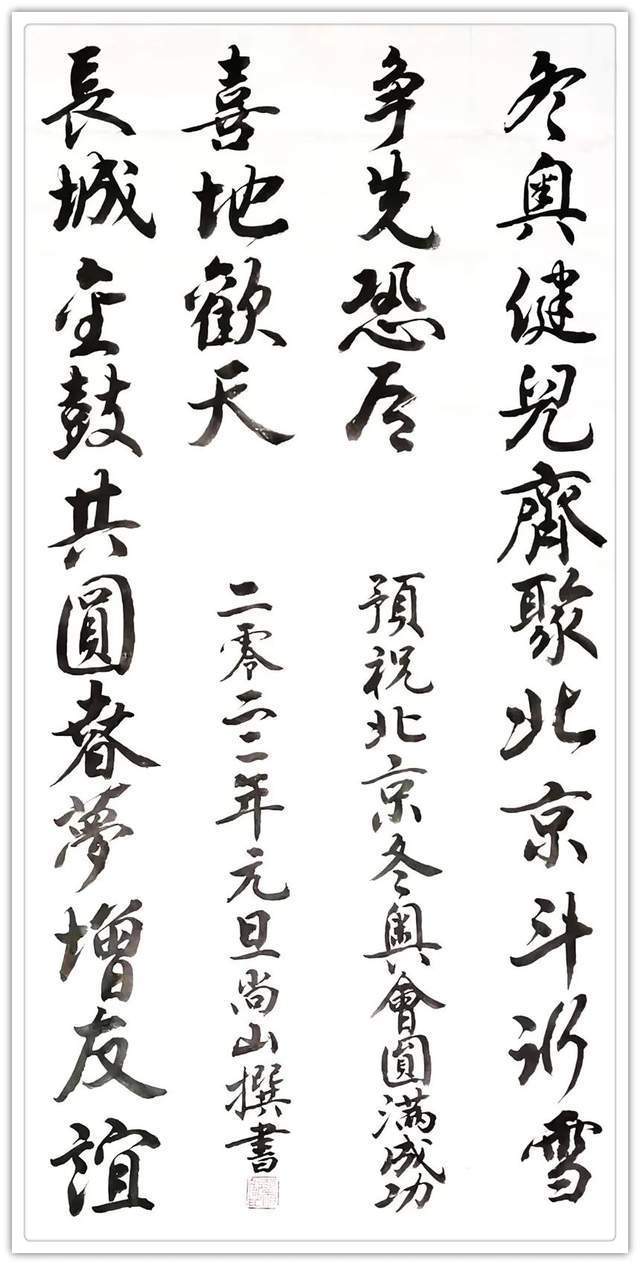 冬奥健兒齊聚北京斗冰雪
争先恐后
預祝北京冬奥會圓滿成功
長城金鼓共圓春夢增友誼
喜地歡天
二零二二年元旦尚山撰書